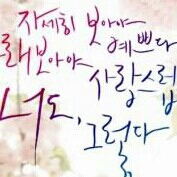 자세히 보아야 예쁘다
래보아야 사랑스럽
너도, 그렇다